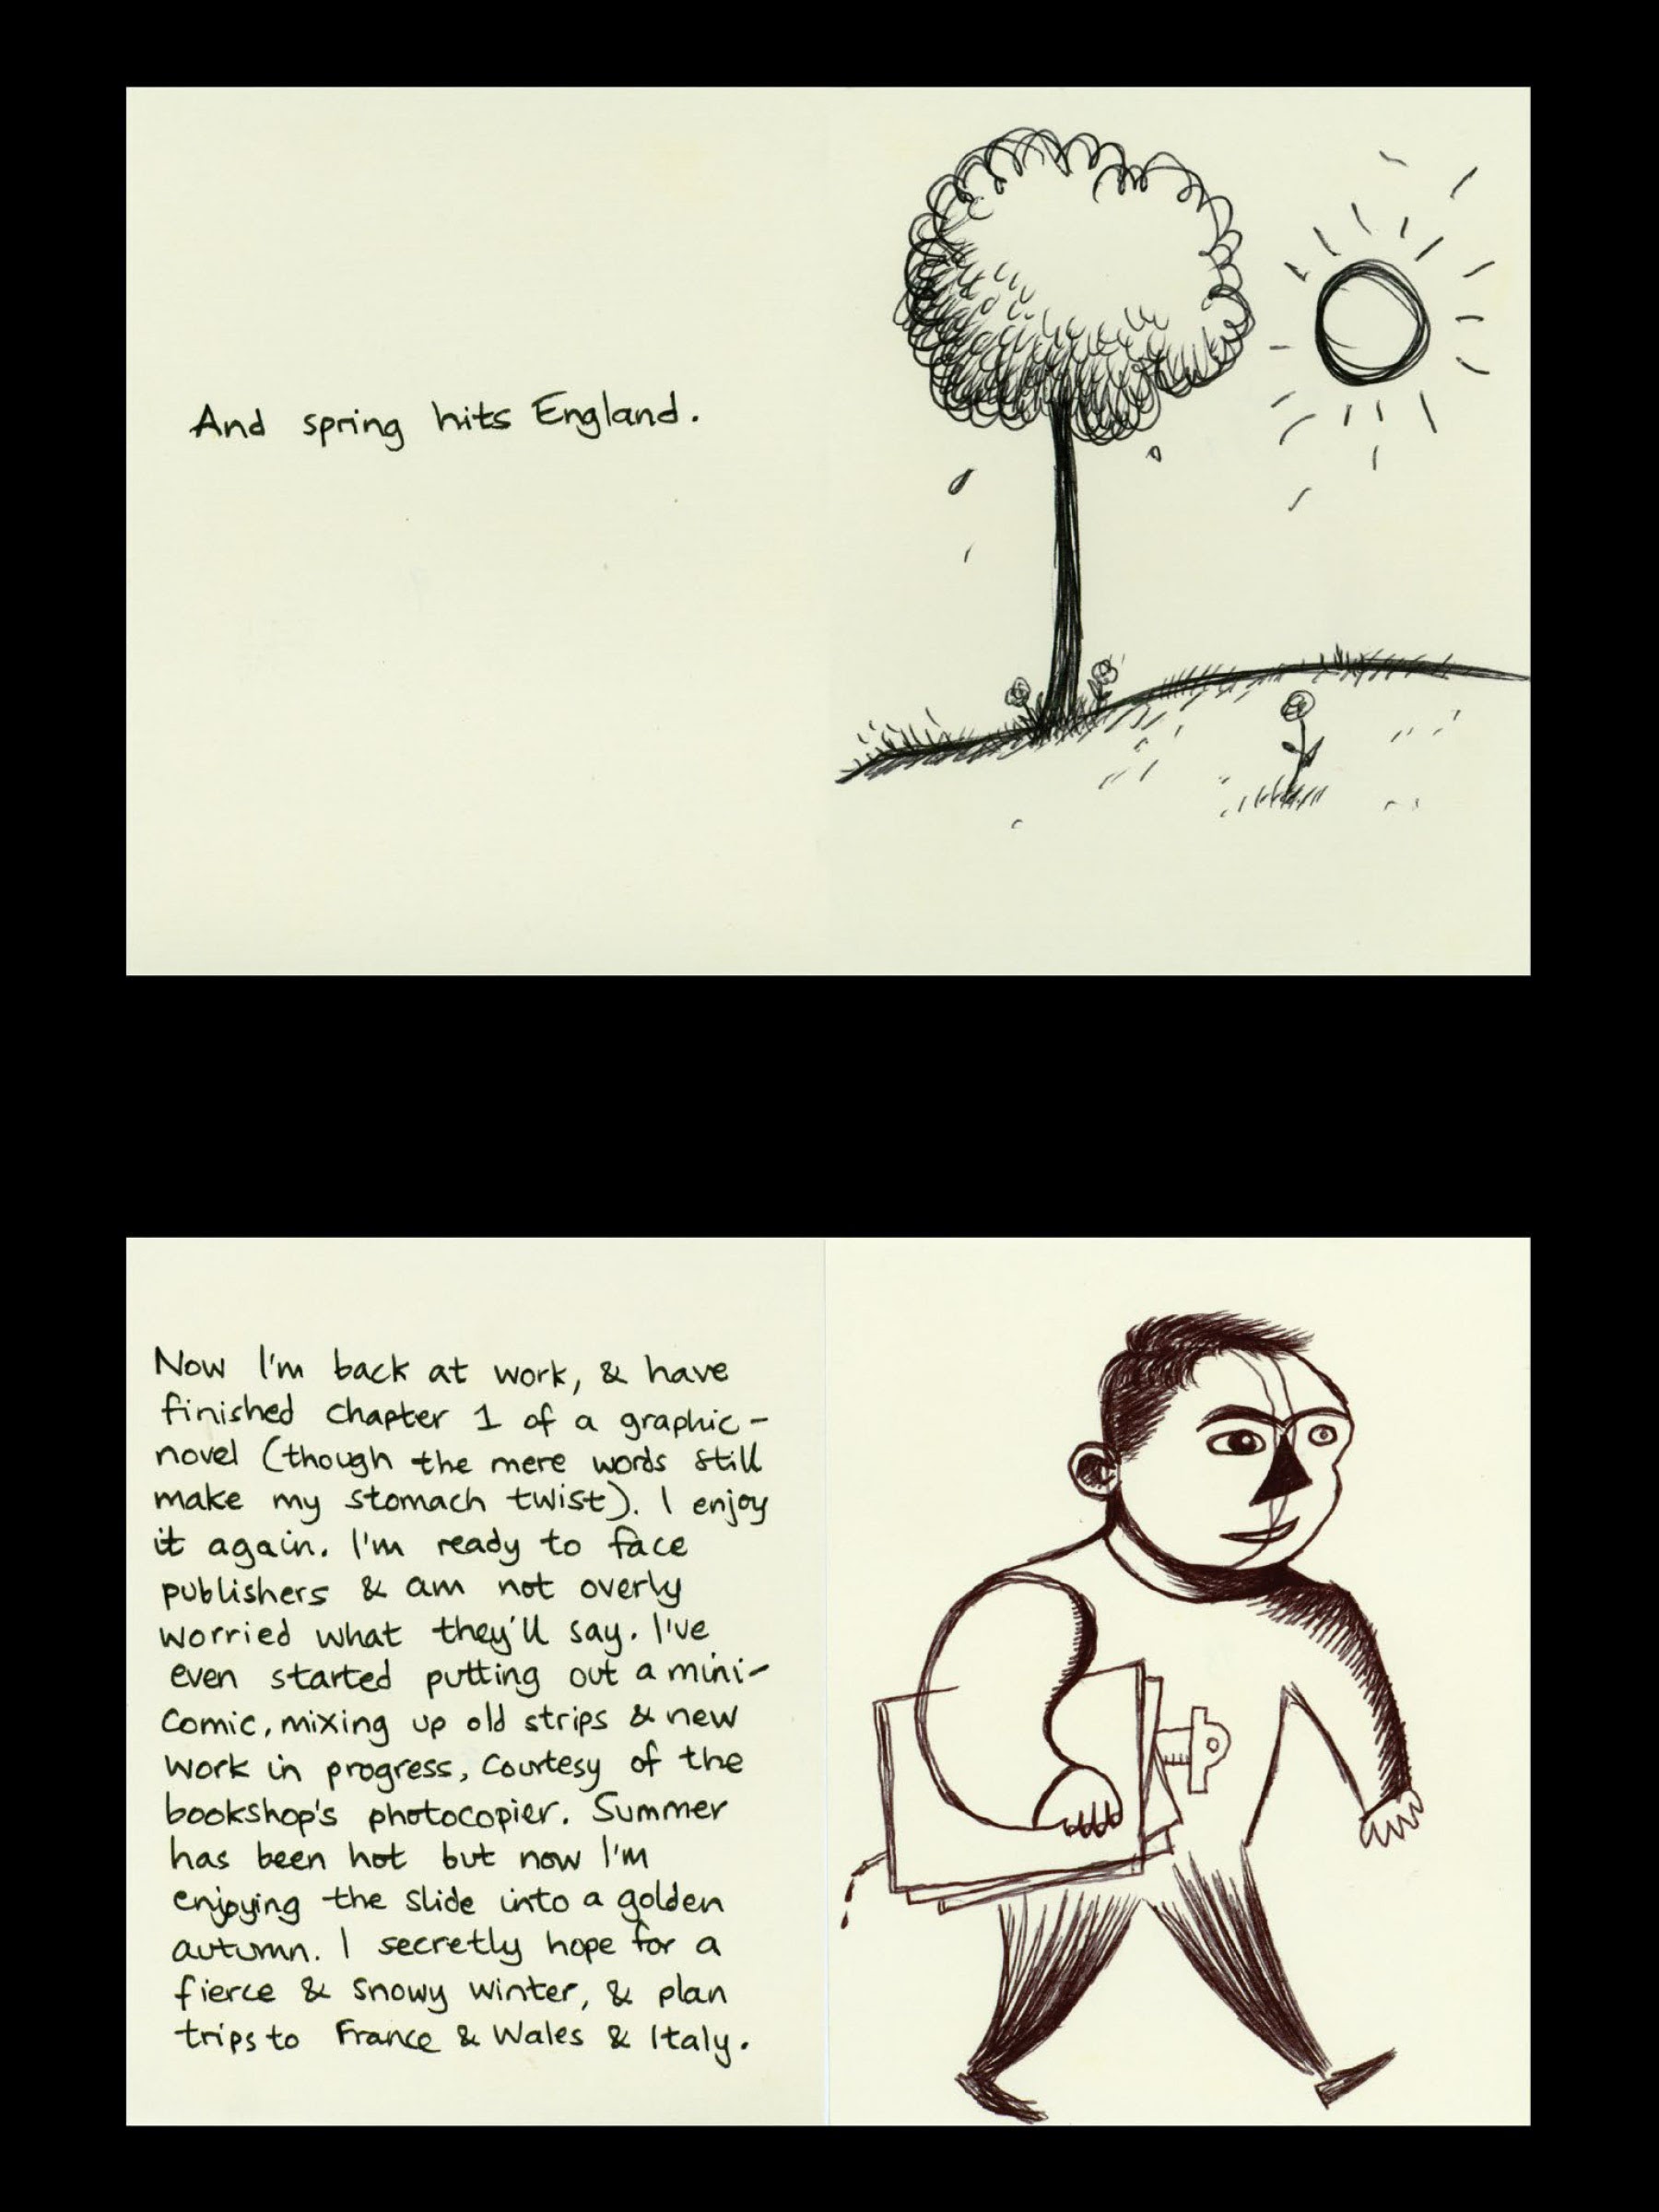 And spring hits England.
Now I'm back at work, & have
finished chapter 1 of a graphic-
novel (though the mere words still
make my stomach twist). I enjoy
it again. I'm ready to face
publishers & am not overly
worried what they'll say. I've
even started putting out a mini-
comic, mixing up old strips & new
work in progress, courtesy of the
bookshop's photocopier. Summer
has been hot but now I'm
enjoying the slide into a golden
autumn. I secretly hope for a
fierce & snowy winter, & plan
trips to France & Wales & Italy.